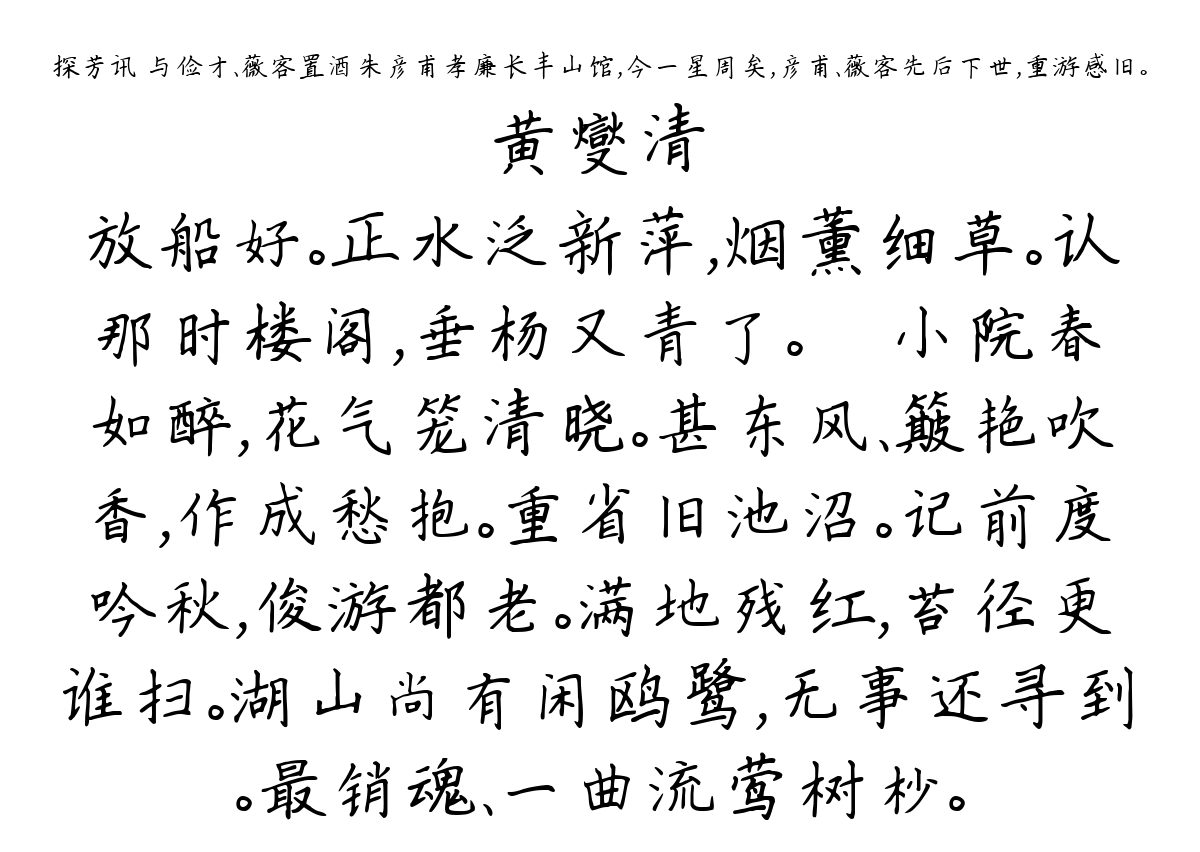 探芳讯 与俭才、薇客置酒朱彦甫孝廉长丰山馆,今一星周矣,彦甫、薇客先后下世,重游感旧。
黄燮清
放船好。正水泛新萍,烟薰细草。认
那时楼阁,垂杨又青了。 小院春
如醉,花气笼清晓。甚东风、簸艳吹
香,作成愁抱。重省旧池沼。记前度
吟秋,俊游都老。满地残红,苔径更
谁扫。湖山尚有闲鸥鹭,无事还寻到
。最销魂、一曲流莺树杪。